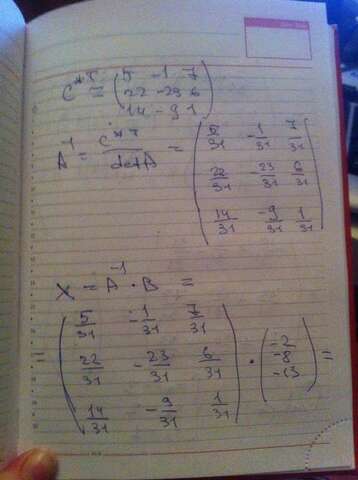 C*ᵀ = ( 5 -1 7
22 -23 6
14 -9 1 )
A⁻¹ = C*ᵀ / detA = ( 5/31 -1/31 7/31
22/31 -23/31 6/31
14/31 -9/31 1/31 )
X = A⁻¹ · B =
= ( 5/31 -1/31 7/31
22/31 -23/31 6/31
14/31 -9/31 1/31 ) · ( -2
-8
-13 ) =